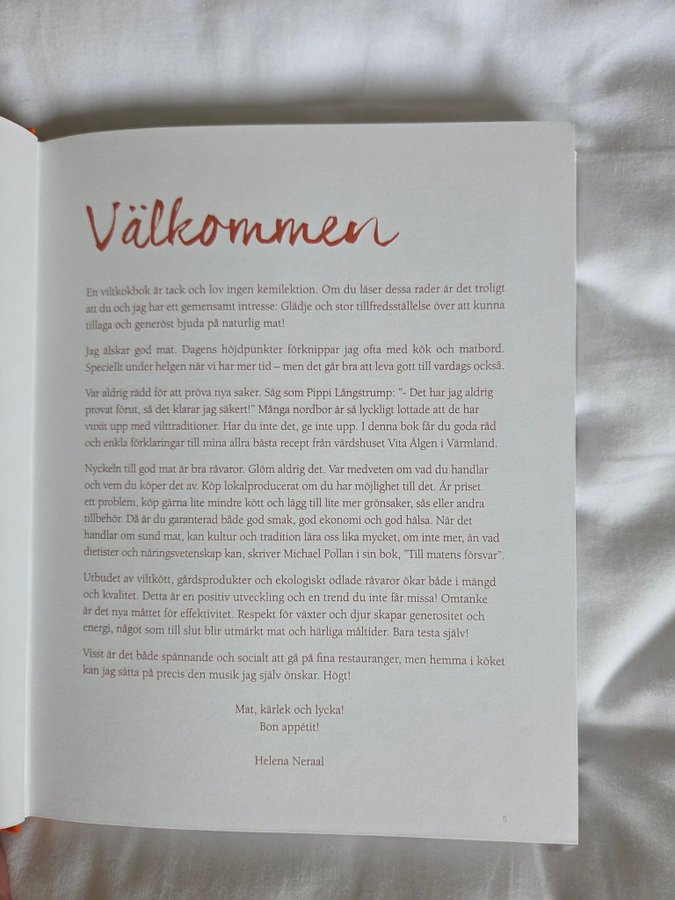 Välkommen
En viltkokbok är tack och lov ingen kemilektion. Om du läser dessa rader är det troligt
att du och jag har ett gemensamt intresse: Glädje och stor tillfredsställelse över att kunna
tillaga och generöst bjuda på naturlig mat!
Jag älskar god mat. Dagens höjdpunkter förknippar jag ofta med kök och matbord.
Speciellt under helgen när vi har mer tid – men det går bra att leva gott till vardags också.
Var aldrig rädd för att pröva nya saker. Säg som Pippi Långstrump: "- Det har jag aldrig
provat förut, så det klarar jag säkert!" Många nordbor är så lyckligt lottade att de har
vuxit upp med vilttraditioner. Har du inte det, ge inte upp. I denna bok får du goda råd
och enkla förklaringar till mina allra bästa recept från värdshuset Vita Älgen i Värmland.
Nyckeln till god mat är bra råvaror. Glöm aldrig det. Var medveten om vad du handlar
och vem du köper det av. Köp lokalproducerat om du har möjlighet till det. Är priset
ett problem, köp gärna lite mindre kött och lägg till lite mer grönsaker, sås eller andra
tillbehör. Då är du garanterad både god smak, god ekonomi och god hälsa. När det
handlar om sund mat, kan kultur och tradition lära oss lika mycket, om inte mer, än vad
dietister och näringsvetenskap kan, skriver Michael Pollan i sin bok, "Till matens försvar".
Utbudet av viltkött, gårdsprodukter och ekologiskt odlade råvaror ökar både i mängd
och kvalitet. Detta är en positiv utveckling och en trend du inte får missa! Omtanke
är det nya måttet för effektivitet. Respekt för växter och djur skapar generositet och
energi, något som till slut blir utmärkt mat och härliga måltider. Bara testa själv!
Visst är det både spännande och socialt att gå på fina restauranger, men hemma i köket
kan jag sätta på precis den musik jag själv önskar. Högt!
Mat, kärlek och lycka!
Bon appétit!
Helena Neraal
5